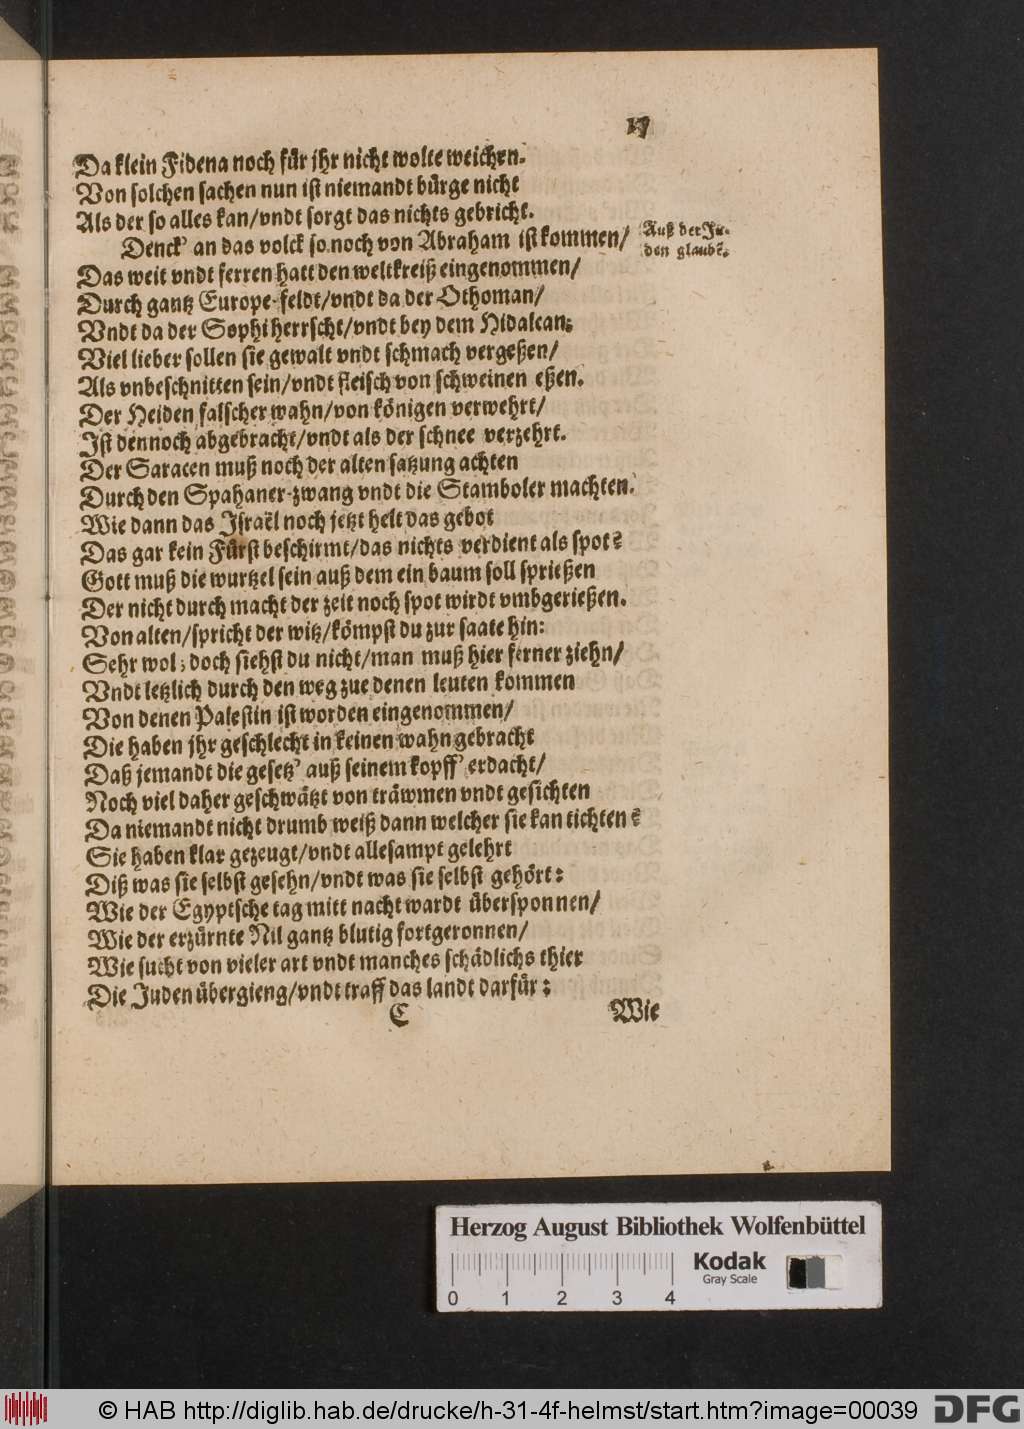 17
Da klein Fidena noch für jhr nicht wolte weichen.
Von solchen sachen nun ist niemandt bürge nicht
Als der so alles kan/vndt sorgt das nichts gebricht.
Denck' an das volck so noch von Abraham ist kommen/
Auß der Jü-
den glaubē.
Das weit vndt ferren hatt den weltkreiß eingenommen/
Durch gantz Europe-feldt/vndt da der Othoman/
Vndt da der Sophi herrscht/vndt bey dem Hidalcan;
Viel lieber sollen sie gewalt vndt schmach vergeßen/
Als vnbeschnitten sein/vndt fleisch von schweinen eßen.
Der Heiden falscher wahn/von königen verwehrt/
Ist dennoch abgebracht/vndt als der schnee verzehrt.
Der Saracen muß noch der alten satzung achten
Durch den Spahaner-zwang vndt die Stamboler machten.
Wie dann das Israël noch jetzt helt das gebot
Das gar kein Fürst beschirmt/das nichts verdient als spot?
Gott muß die wurtzel sein auß dem ein baum soll sprießen
Der nicht durch macht der zeit noch spot wirdt vmbgerießen.
Von alten/spricht der witz/kömpst du zur saate hin:
Sehr wol; doch siehst du nicht/man muß hier ferner ziehn/
Vndt letzlich durch den weg zue denen leuten kommen
Von denen Palestin ist worden eingenommen/
Die haben jhr geschlecht in keinen wahn gebracht
Daß jemandt die gesetz' auß seinem kopff' erdacht/
Noch viel daher geschwätzt von träwmen vndt gesichten
Da niemandt nicht drumb weiß dann welcher sie kan tichten?
Sie haben klar gezeugt/vndt allesampt gelehrt
Diß was sie selbst gesehn/vndt was sie selbst gehört:
Wie der Egyptsche tag mitt nacht wardt übersponnen/
Wie der erzürnte Nil gantz blutig fortgeronnen/
Wie sucht von vieler art vndt manches schädlichs thier
Die Juden übergieng/vndt traff das landt darfür:
C
Wie
Herzog August Bibliothek Wolfenbüttel
Kodak
Gray Scale
0 1 2 3 4
© HAB http://diglib.hab.de/drucke/h-31-4f-helmst/start.htm?image=00039
DFG